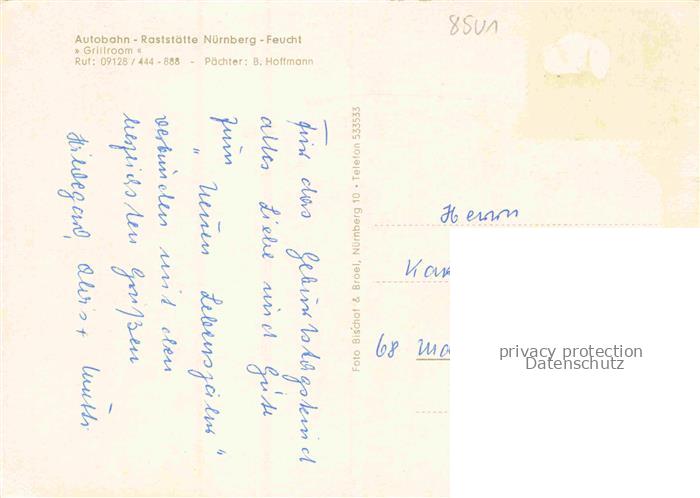 85U1
Autobahn - Raststätte Nürnberg - Feucht
» Grillroom «
Ruf: 09128 / 444 - 888 - Pächter: B. Hoffmann
Für das Geburtstagskind
alles Liebe und Gute
zum
" neuen Lebensjahr "
verbunden mit den
herzlichsten Grüßen
Hildegard, Alois + Mutti
Foto Bischof & Broel, Nürnberg 10 • Telefon 533533
Herrn
68
privacy protection
Datenschutz